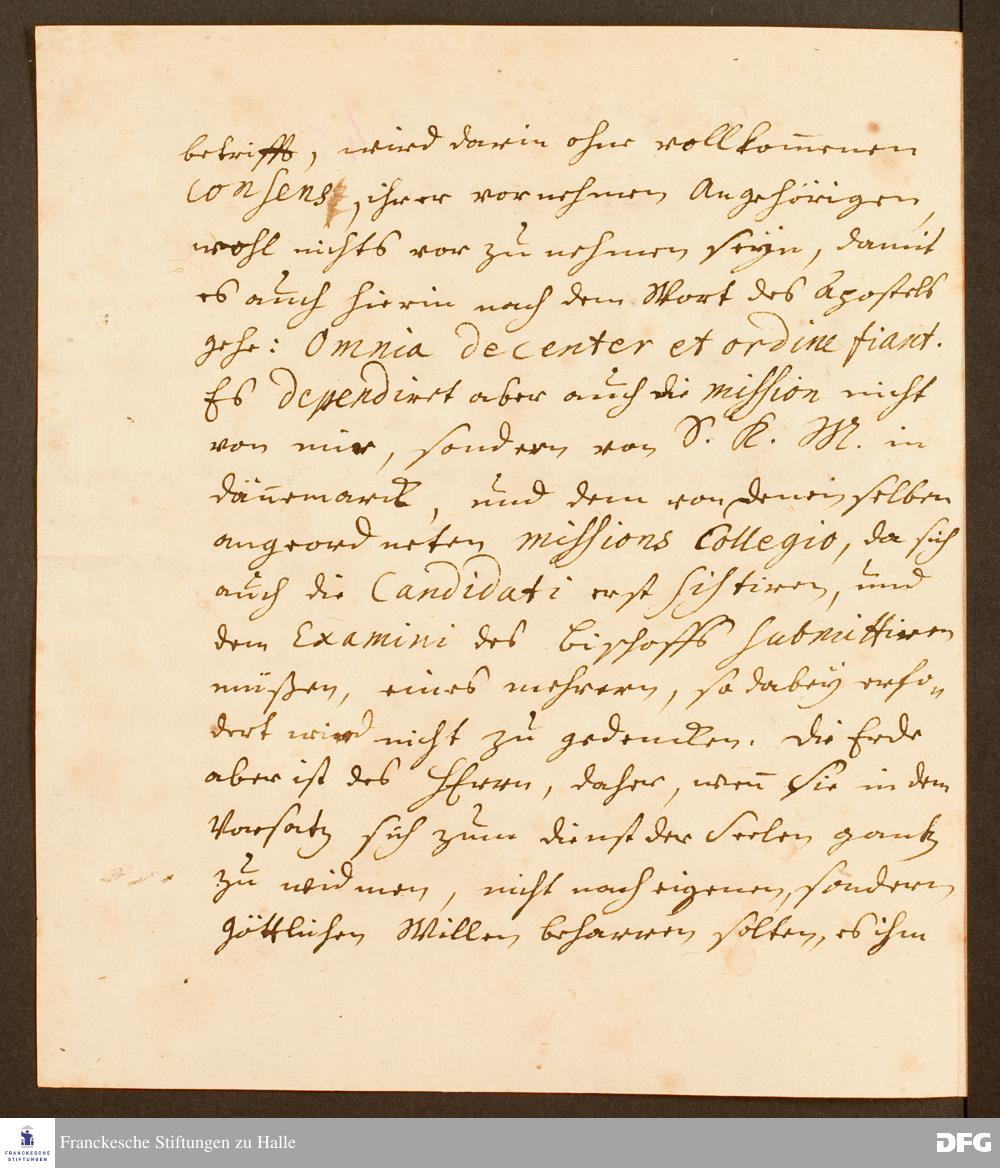 betrifft, wird darin ohne vollkom̄enen
Consens, ihrer vornehmen Angehörigen,
wohl nichts vor zu nehmen seyn, damit
es auch hierin nach dem Wort des Apostels
gehe: Omnia decenter et ordine fiant.
Es dependiret aber auch die mission nicht
von mir, sondern von S. K. M. in
Dännemarck, und dem von denenselben
angeordneten missions Collegio, da sich
auch die Candidati erst sistiren, und
dem Examini des Bischoffs submittiren
müßen, eines mehrern, so dabey erfo„
dert wird nicht zu gedencken. Die Erde
aber ist des HErrn, daher, wen̄ Sie in dem
Vorsatz sich zum dienst der Seelen gantz
zu widmen, nicht nach eigenen, sondern
göttlichen Willen beharren solten, es ihm
Franckesche Stiftungen zu Halle
FRANCKESCHE
STIFTUNGEN
DFG